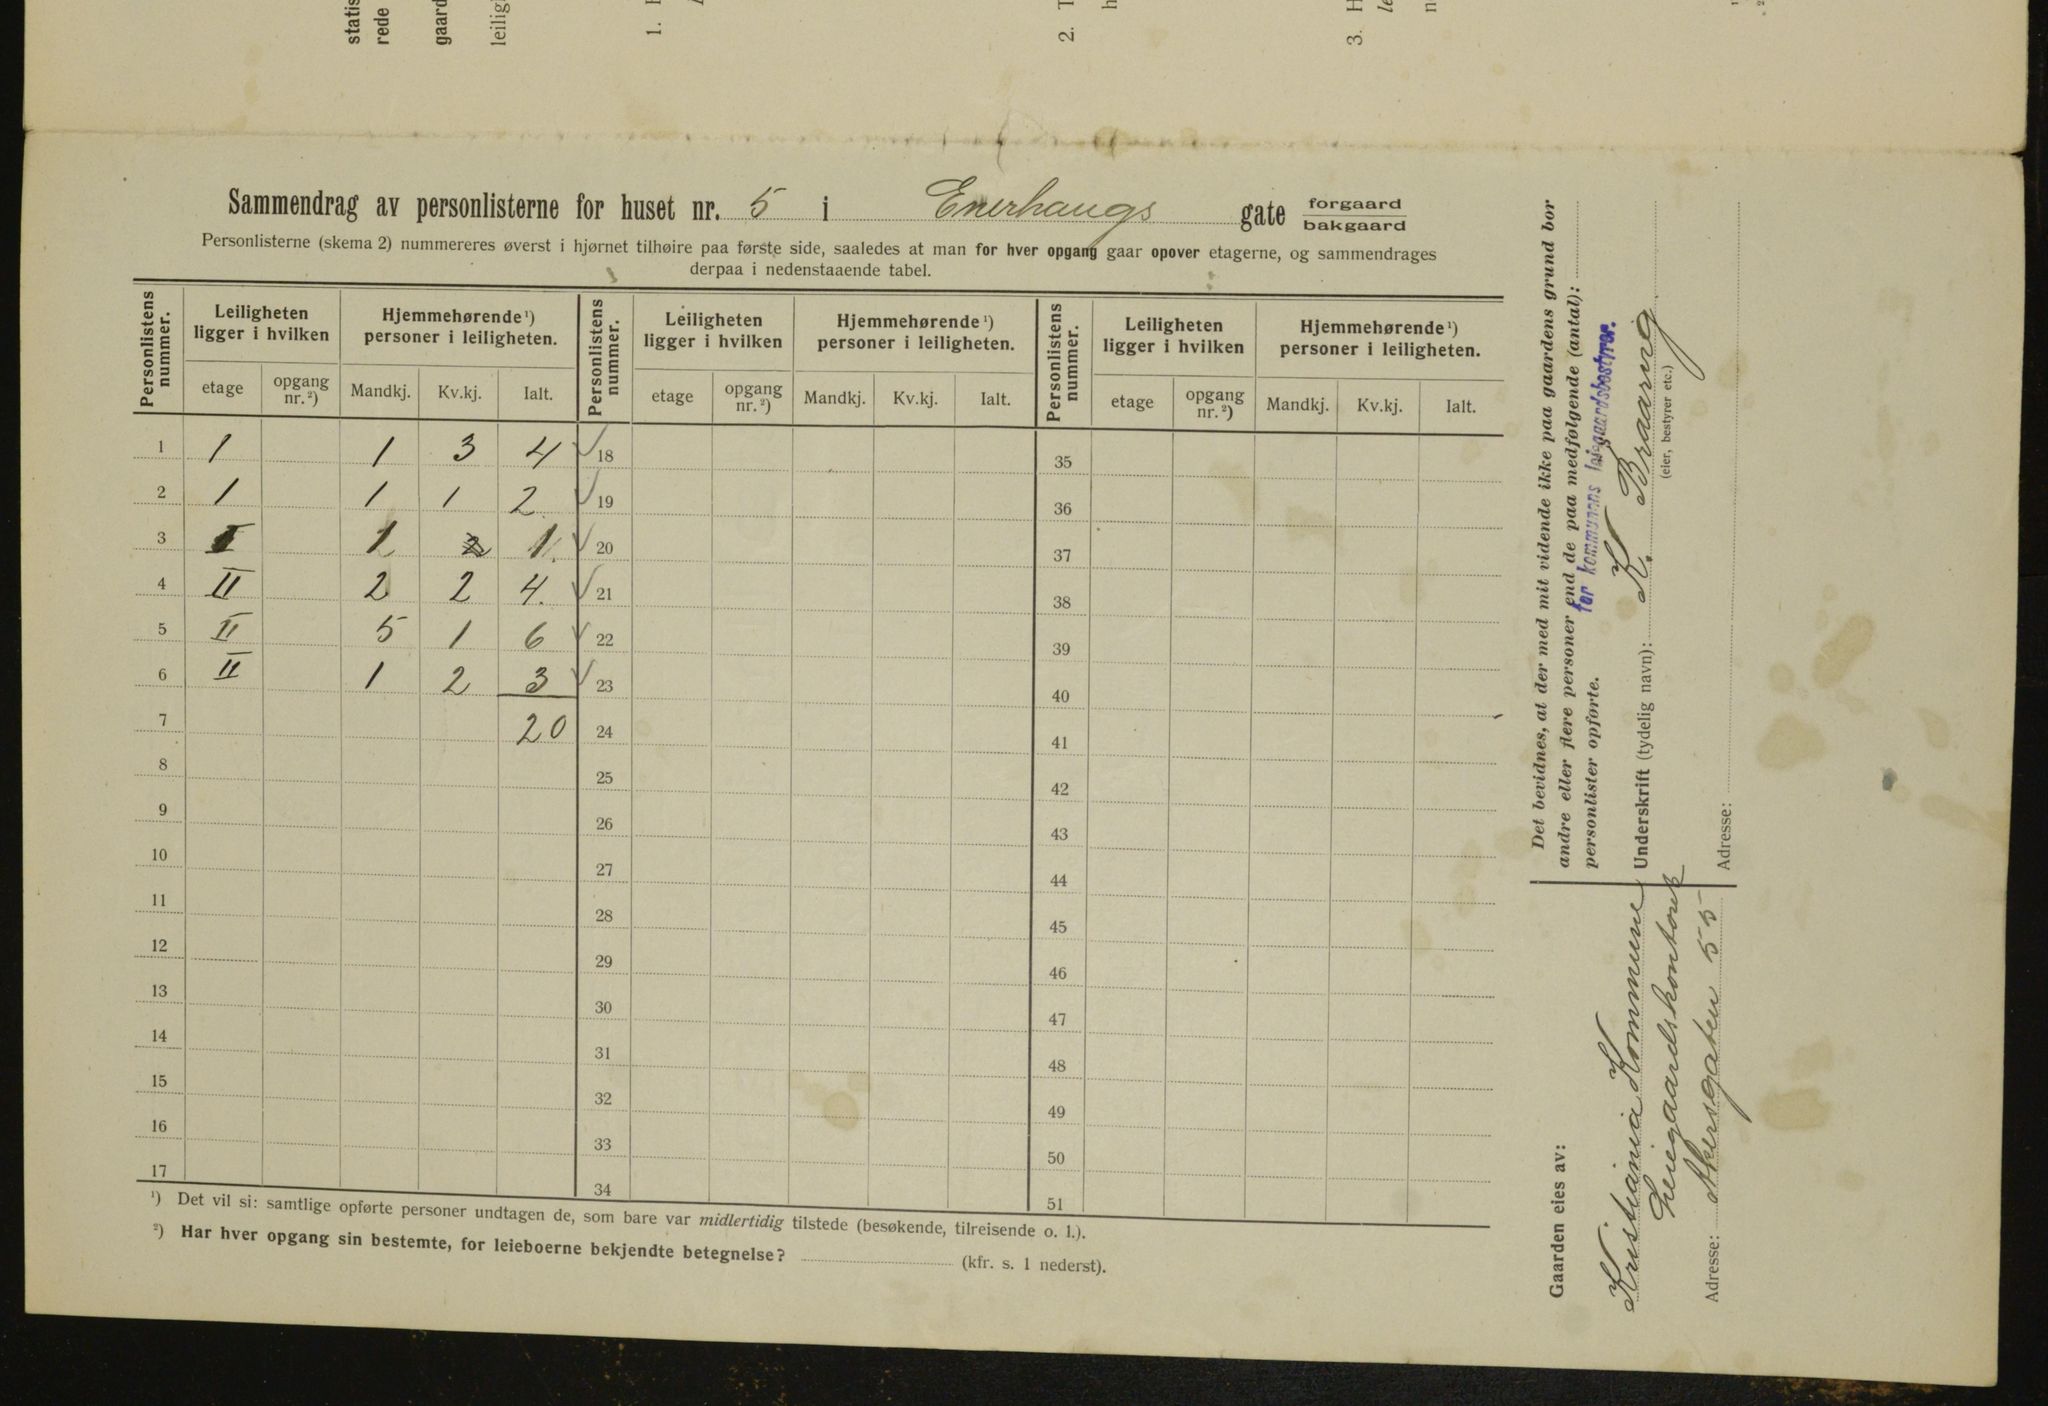 statis
rede
gaard
leilig
1.
2. T
h
3. H
le
n
Sammendrag av personlisterne for huset nr. 5 i Enerhaugs gate forgaard
bakgaard
Personlisterne (skema 2) nummereres øverst i hjørnet tilhøire paa første side, saaledes at man for hver opgang gaar opover etagerne, og sammendrages
derpaa i nedenstaaende tabel.
Personlistens nummer. Leiligheten ligger i hvilken Hjemmehørende ¹) personer i leiligheten. Personlistens nummer. Leiligheten ligger i hvilken Hjemmehørende ¹) personer i leiligheten. Personlistens nummer. Leiligheten ligger i hvilken Hjemmehørende ¹) personer i leiligheten.
etage opgang nr. ²) Mandkj. Kv.kj. Ialt. etage opgang nr. ²) Mandkj. Kv.kj. Ialt. etage opgang nr. ²) Mandkj. Kv.kj. Ialt.
1 1 1 3 4 18 35
2 1 1 1 2 19 36
3 I 1 1. 20 37
4 II 2 2 4. 21 38
5 II 5 1 6 22 39
6 II 1 2 3 23 40
7 20 24 41
8 25 42
9 26 43
10 27 44
11 28 45
12 29 46
13 30 47
14 31 48
15 32 49
16 33 50
17 34 51
¹) Det vil si: samtlige opførte personer undtagen de, som bare var midlertidig tilstede (besøkende, tilreisende o. l.).
²) Har hver opgang sin bestemte, for leieboerne bekjendte betegnelse? (kfr. s. 1 nederst).
Det bevidnes, at der med mit vidende ikke paa gaardens grund bor
andre eller flere personer end de paa medfølgende (antal):
personlister opførte. for kommunens leiegaardsbestyrer.
Underskrift (tydelig navn): K. Braarug
(eier, bestyrer etc.)
Adresse:
Gaarden eies av:
Kristiania Kommune
Leiegaardskontoret
Adresse: Akersgaten 55